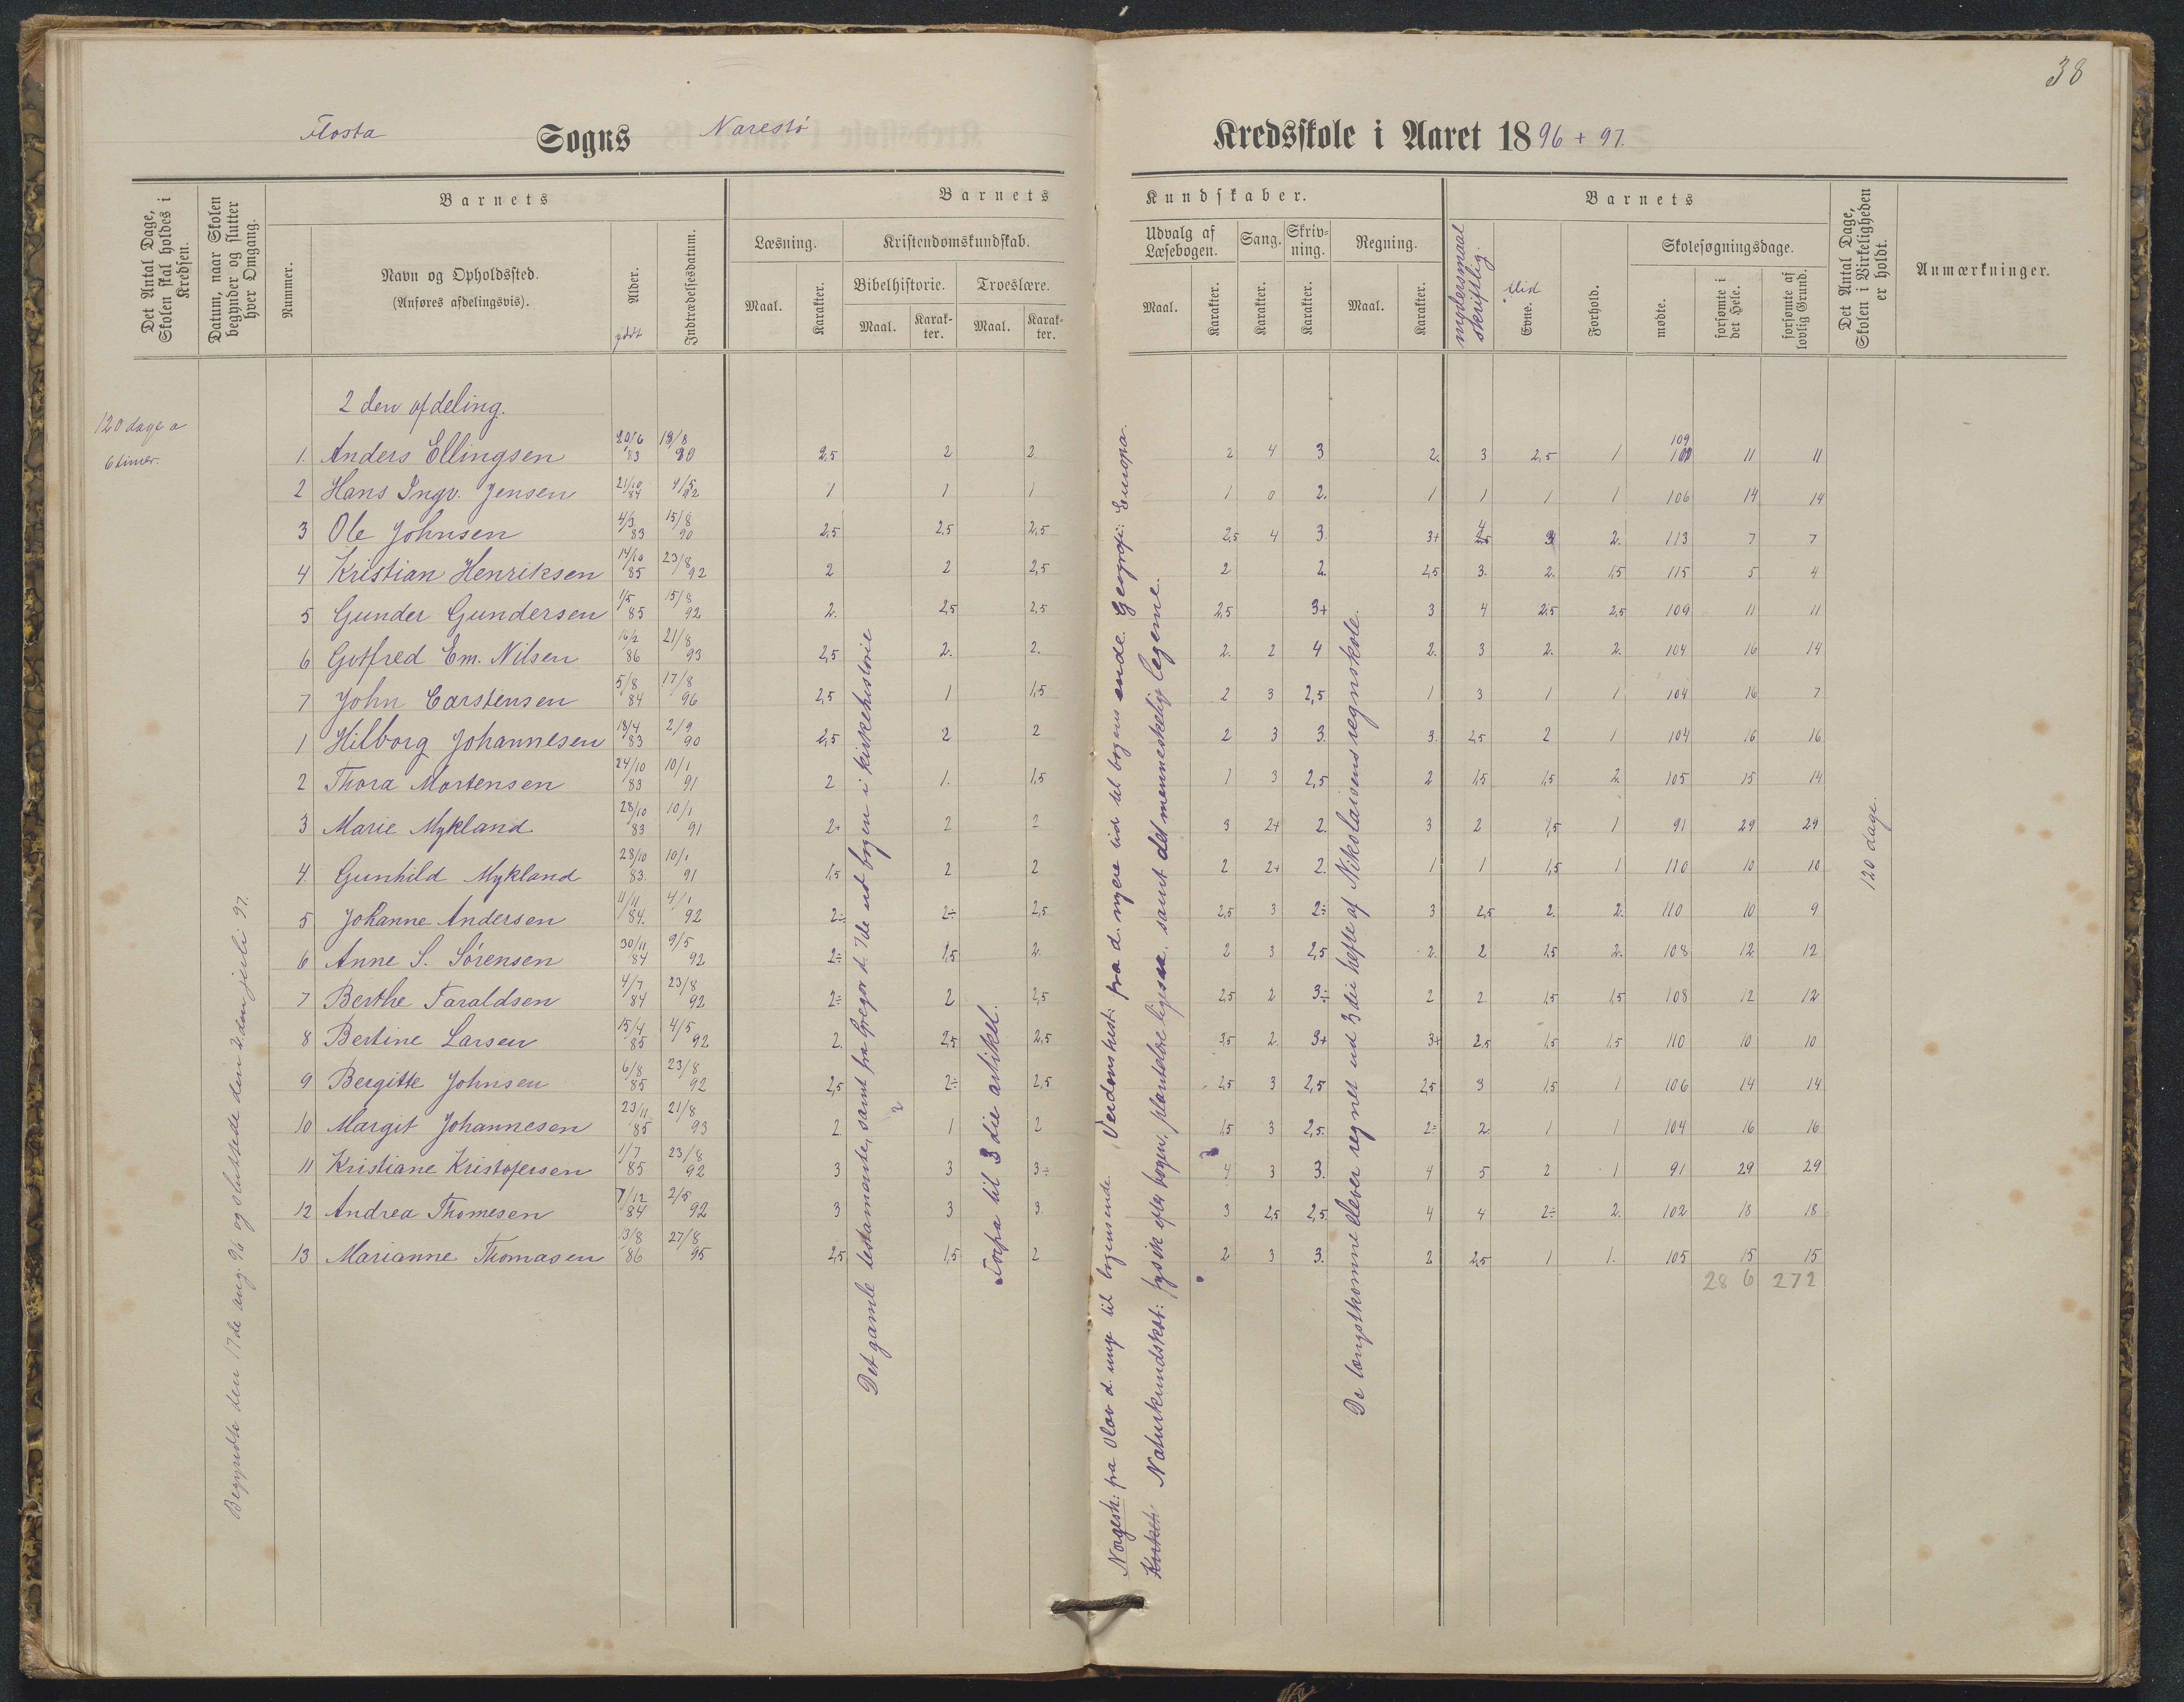 38
Flosta Sogns Narestø Kredsskole i Aaret 1896 + 97.
Det Antal Dage, Skolen skal holdes i Kredsen.
Datum, naar Skolen begynder og slutter hver Omgang.
Nummer.
Barnets
Navn og Opholdssted.
(Anføres afdelingsvis).
Alder.
født
Indtrædelsesdatum.
Barnets Kundskaber.
Læsning.
Maal.
Karakter.
Kristendomskundskab.
Bibelhistorie.
Maal.
Karak-
ter.
Troeslære.
Maal.
Karak-
ter.
Udvalg af
Læsebogen.
Maal.
Karakter.
Sang.
Karakter.
Skriv-
ning.
Karakter.
Regning.
Maal.
Karakter.
Barnets
modersmaal
skriftlig.
Flid
Evne.
Forhold.
Skolesøgningsdage.
mødte.
forsømte i
det Hele.
forsømte af
lovlig Grund.
Det Antal Dage,
Skolen i Virkeligheden
er holdt.
Anmærkninger.
2 den afdeling.
120 dage a
6 timer.
1. Anders Ellingsen 20/6 83 19/8 90 2,5 2 2 2 4 3 2. 3 2,5 1 109 11 11
2 Hans Ingv. Jensen 21/10 84 9/5 92 1 1 1 1 0 2. 1 1 1 1 106 14 14
3 Ole Johnsen 4/3 83 15/8 90 2,5 2,5 2,5 2,5 4 3 3+ 4 3 2. 113 7 7
4 Kristian Henriksen 14/10 85 23/8 92 2 2 2,5 2 2. 2,5 3. 2. 1,5 115 5 4
5 Gunder Gundersen 1/5 85 15/8 92 2. 2,5 2,5 2,5 3+ 3 4 2,5 2,5 109 11 11
6 Gotfred Em. Nilsen 16/2 86 21/8 93 2,5 2. 2. 2. 2 4 2. 3 2. 2. 104 16 14
7 John Carstensen 5/8 84 17/8 96 2,5 1 1,5 2 3 2,5 1 3 1 1 104 16 7
1 Hilborg Johannesen 18/4 83 2/9 90 2,5 2 2 2 3 3. 3. 2,5 2 1 104 16 16
2 Thora Mortensen 24/10 83 10/1 91 2 1. 1,5 1 3 2,5 2 1,5 1,5 2. 105 15 14
3 Marie Mykland 28/10 83 10/1 91 2+ 2 2 3 2+ 2. 3 2 1,5 1 91 29 29
4. Gunhild Mykland 28/10 83. 10/1 91 1,5 2 2 2 2+ 2. 1 1 1,5 1 110 10 10
5 Johanne Andersen 11/11 84. 4/1 92 2÷ 2÷ 2,5 2,5 3 2÷ 3 2,5 2. 2. 110 10 9
6 Anne S. Sørensen 30/11 84 9/5 92 2÷ 1,5 2. 2 3 2,5 2. 2 1,5 2. 108 12 12
7 Berthe Taraldsen 4/7 84 23/8 92 2÷ 2 2,5 2,5 2 3÷ 2 2. 1,5 1,5 108 12 12
8 Bertine Larsen 15/4 85 4/5 92 2. 2,5 2,5 3,5 2. 3+ 3+ 2,5 1,5 1,5 110 10 10
9 Bergitte Johnsen 6/8 85 23/8 92 2,5 2÷ 2,5 2,5 3 2,5 2,5 3 1,5 1 106 14 14
10 Margit Johannesen 23/11 85 21/8 93 2. 1 2 1,5 3 2,5. 2÷ 2. 1 1 104 16 16
11 Kristiane Kristofersen 1/7 85 23/8 92 3 3 3÷ 4 3 3. 4 5 2 1 91 29 29
12 Andrea Thomesen 7/12 84 2/5 92 3 3 3 3 2,5 2,5 4 4 2÷ 2. 102 18 18
13 Marianne Thomasen 13/8 86 27/8 95 2,5 1,5 2 2 3 3. 2 2,5 1 1. 105 15 15
286 272
Begyndte den 17de aug. 96 og sluttede den 2den juli 97.
Det gamle testamente, samt fra Gregor d. 7de ud bogen i kirkehistorie
Forfra til 3die artikel.
Norgesh: fra Olav d. unge til bogens ende. Verdenshist: fra d. nyere tid til bogens ende. Geografi: Europa.
Naturkundskab: fysik efter bogen, plantelære ligesaa, samt det menneskelig legeme.
De længstkomne elever regnet ud 3die hefte af Nikolaisens regnskole.
120 dage.